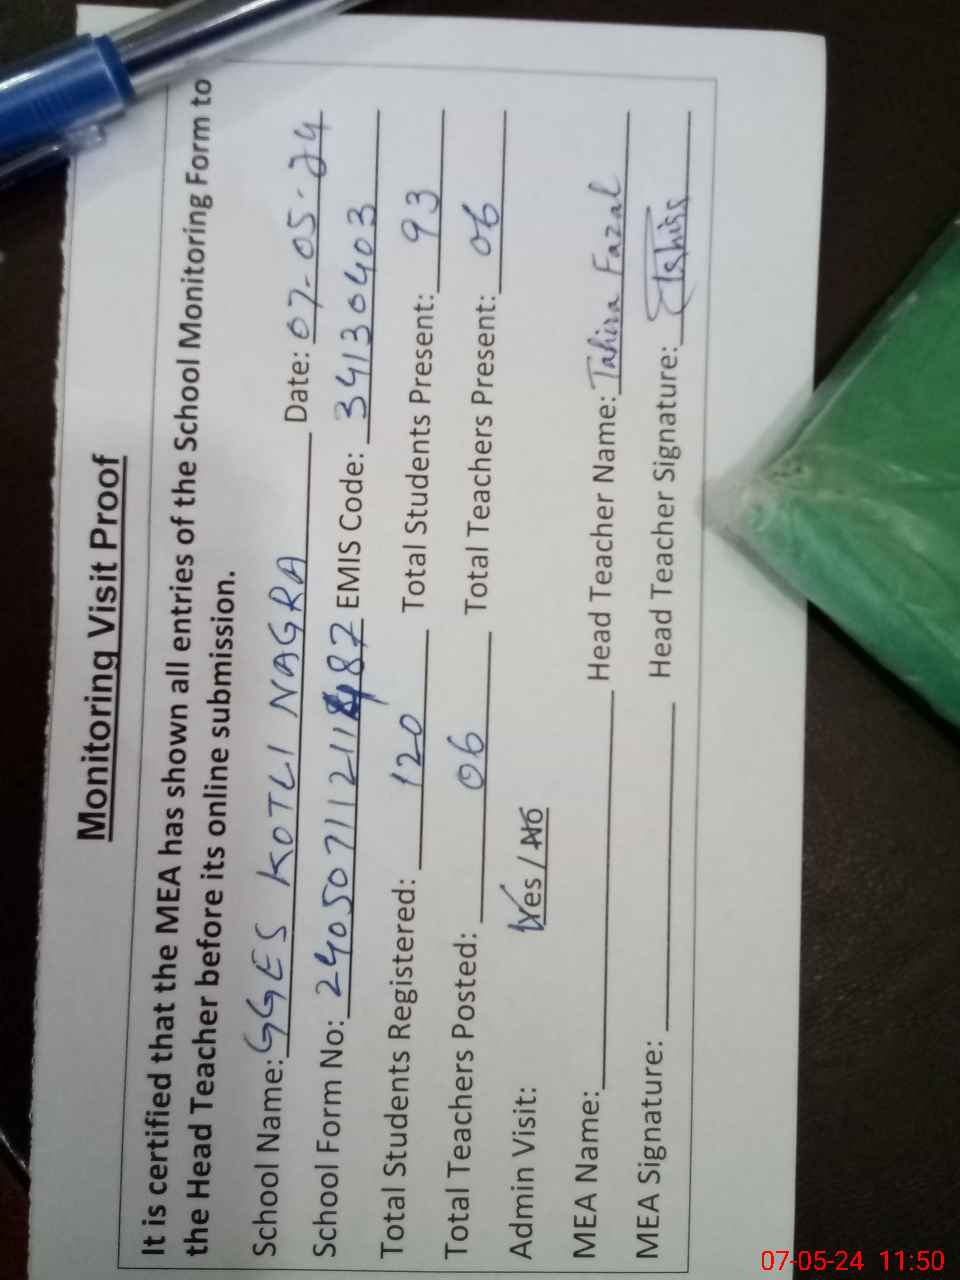 Monitoring Visit Proof
It is certified that the MEA has shown all entries of the School Monitoring Form to
the Head Teacher before its online submission.
School Name: GGES KOTLI NAGRA Date: 07-05-24
School Form No: 240507112118 87 EMIS Code: 34130403
Total Students Registered: 120 Total Students Present: 93
Total Teachers Posted: 06 Total Teachers Present: 06
Admin Visit: Yes / No
MEA Name: Head Teacher Name: Tahira Fazal
MEA Signature: Head Teacher Signature:
07-05-24 11:50